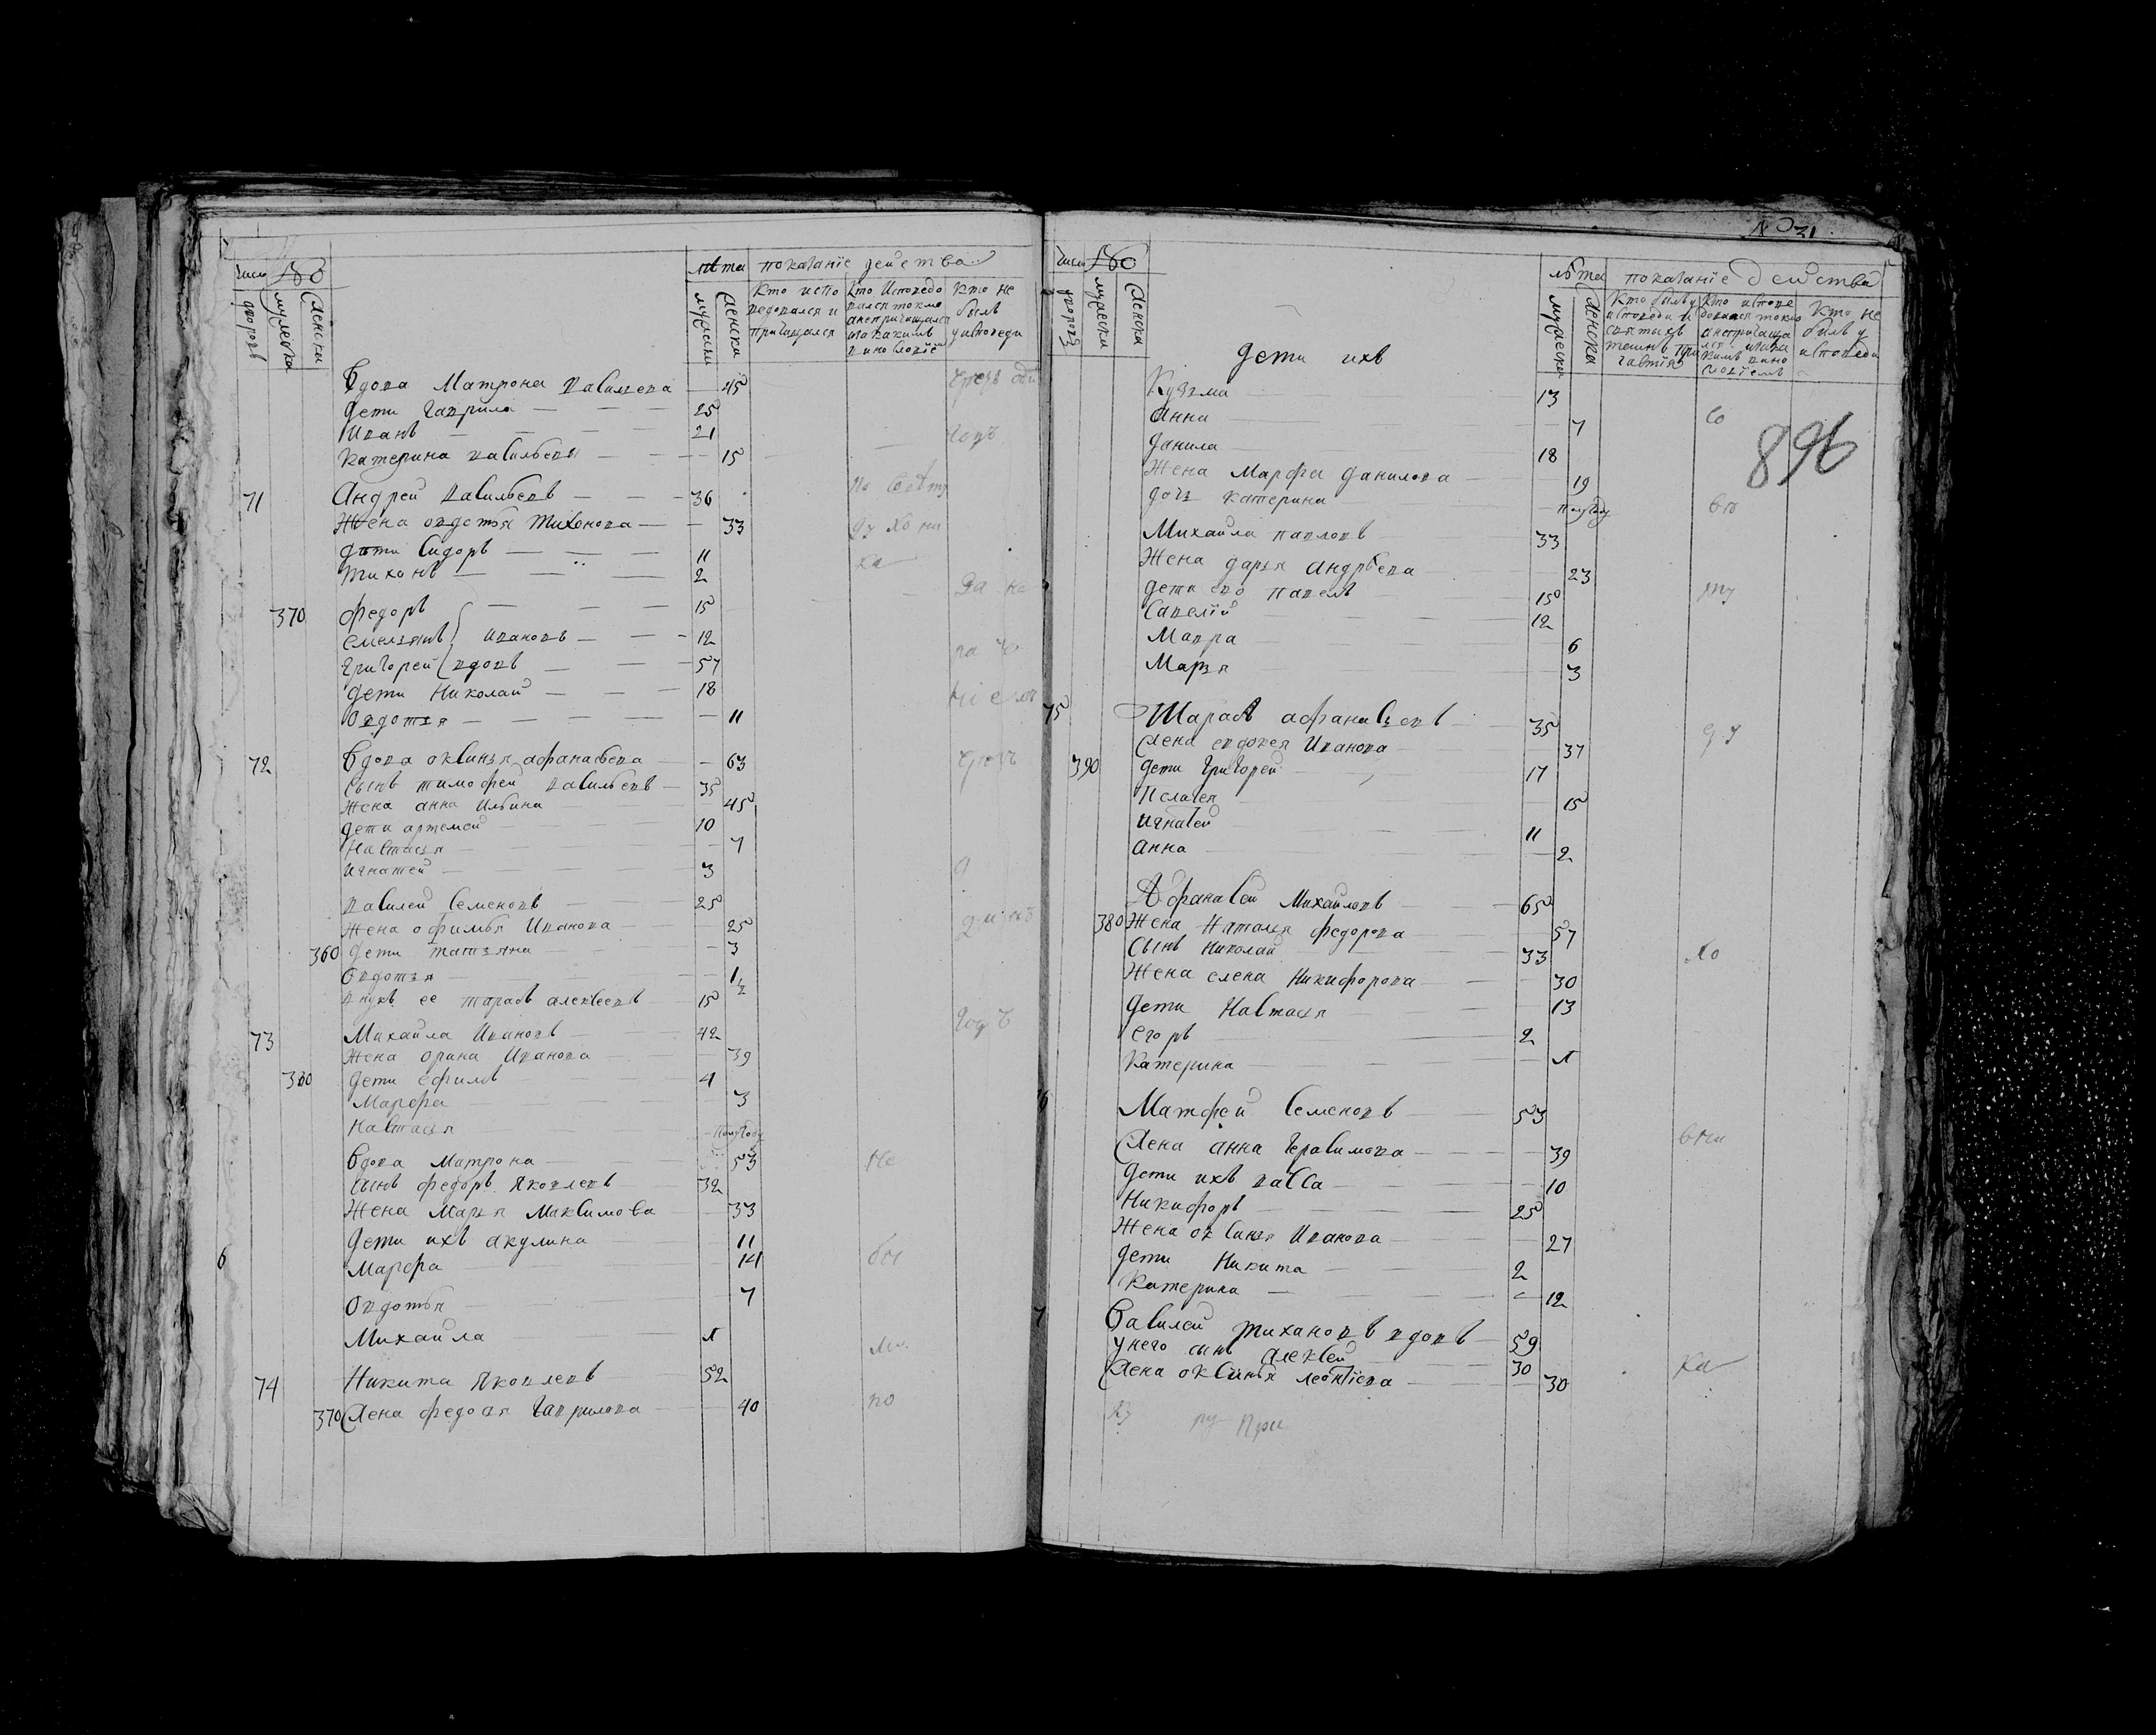 число
лѣта показанїе действа
дворовъ
мужеска
женски
мужески
женска
Кто испо
ведовался и
причащался
Кто Исповедо
вался токмо
а непричащался
и за какимъ
винословїе
Кто не
былъ
у исповеди
Вдова Матрона васильева — 45
дети гаврила — 25
Иванъ — 21
Катерина васильева — 15
71 Андрей васильевъ — 36
Жена овдотья Тихонова — 33
дѣти Сидоръ — 11
Тихонъ — 2
370 федоръ — 15
емельянъ Ивановъ — 12
григорей вдовъ — 57
дети Николай — 18
Овдотья — 11
72 Вдова оксинья афанасьева — 63
Сынъ тимофей васильевъ — 35
Жена анна Ильина 45
дети артемей — 10
Настасья — 7
Игнатей — 3
василей Семеновъ — 25
Жена офимья Иванова — 25
360 дети татьяна — 3
Овдотья — 1/2
внукъ ее тарасъ алексеевъ 15
73 Михайла Ивановъ 42
Жена орина Иванова — 39
380 дети ефимъ 4
Марфа 3
Настасья — полугоду
Вдова Матрона — 53
Сынъ федоръ Яковлевъ — 32
Жена Марья Максимова 33
дети ихъ акулина 11
Марфа 14
Овдотья 7
Михайла 1
74 Никита Яковлевъ 52
370 Жена федосья гаврилова — 40
чрезъ
годъ
По
духовни
ка
Да не
чрезъ
годъ
не
бы
по
№ 31
число
лѣта показанїе действа
дворовъ
мужески
женска
мужеска
женска
Кто былъ у
исповеди и
святыхъ
таинъ при
частїя
Кто испове
довался токмо
а непричаща
лся и за ка
кимъ вино
словїемъ
Кто не
былъ у
исповеди
896
дети ихъ
Кузма — 13
Анна — 7
данила — 18
Жена Марфа данилова — 19
дочь катерина — полугоду
Михайла павловъ — 33
Жена дарья андрѣева — 23
дети ево павелъ — 15
Савелїй — 12
Мавра — 6
Марья — 3
75 Тарасъ афанасьевъ — 35
Жена евдокея Иванова — 37
390 дети григорей — 17
Пелагея 15
Игнасей 11
анна — 2
Афанасей Михайловъ — 65
380 Жена Наталья федорова — 57
Сынъ Николай 33
Жена елена Никифорова — 30
дети Настасья — 13
егоръ — 2
Катерина — 1
6 Матфей Семеновъ — 53
Жена анна герасимова — 39
дети ихъ васса — 10
Никифоръ — 25
Жена оксинья Иванова — 27
дети Никита — 2
Катерина — 12
7 Василей тихановъ вдовъ — 59
у него сынъ алексей 30
Жена оксинья леонтїева — 30
со
вѣ
ту
ду
хо
вни
ка